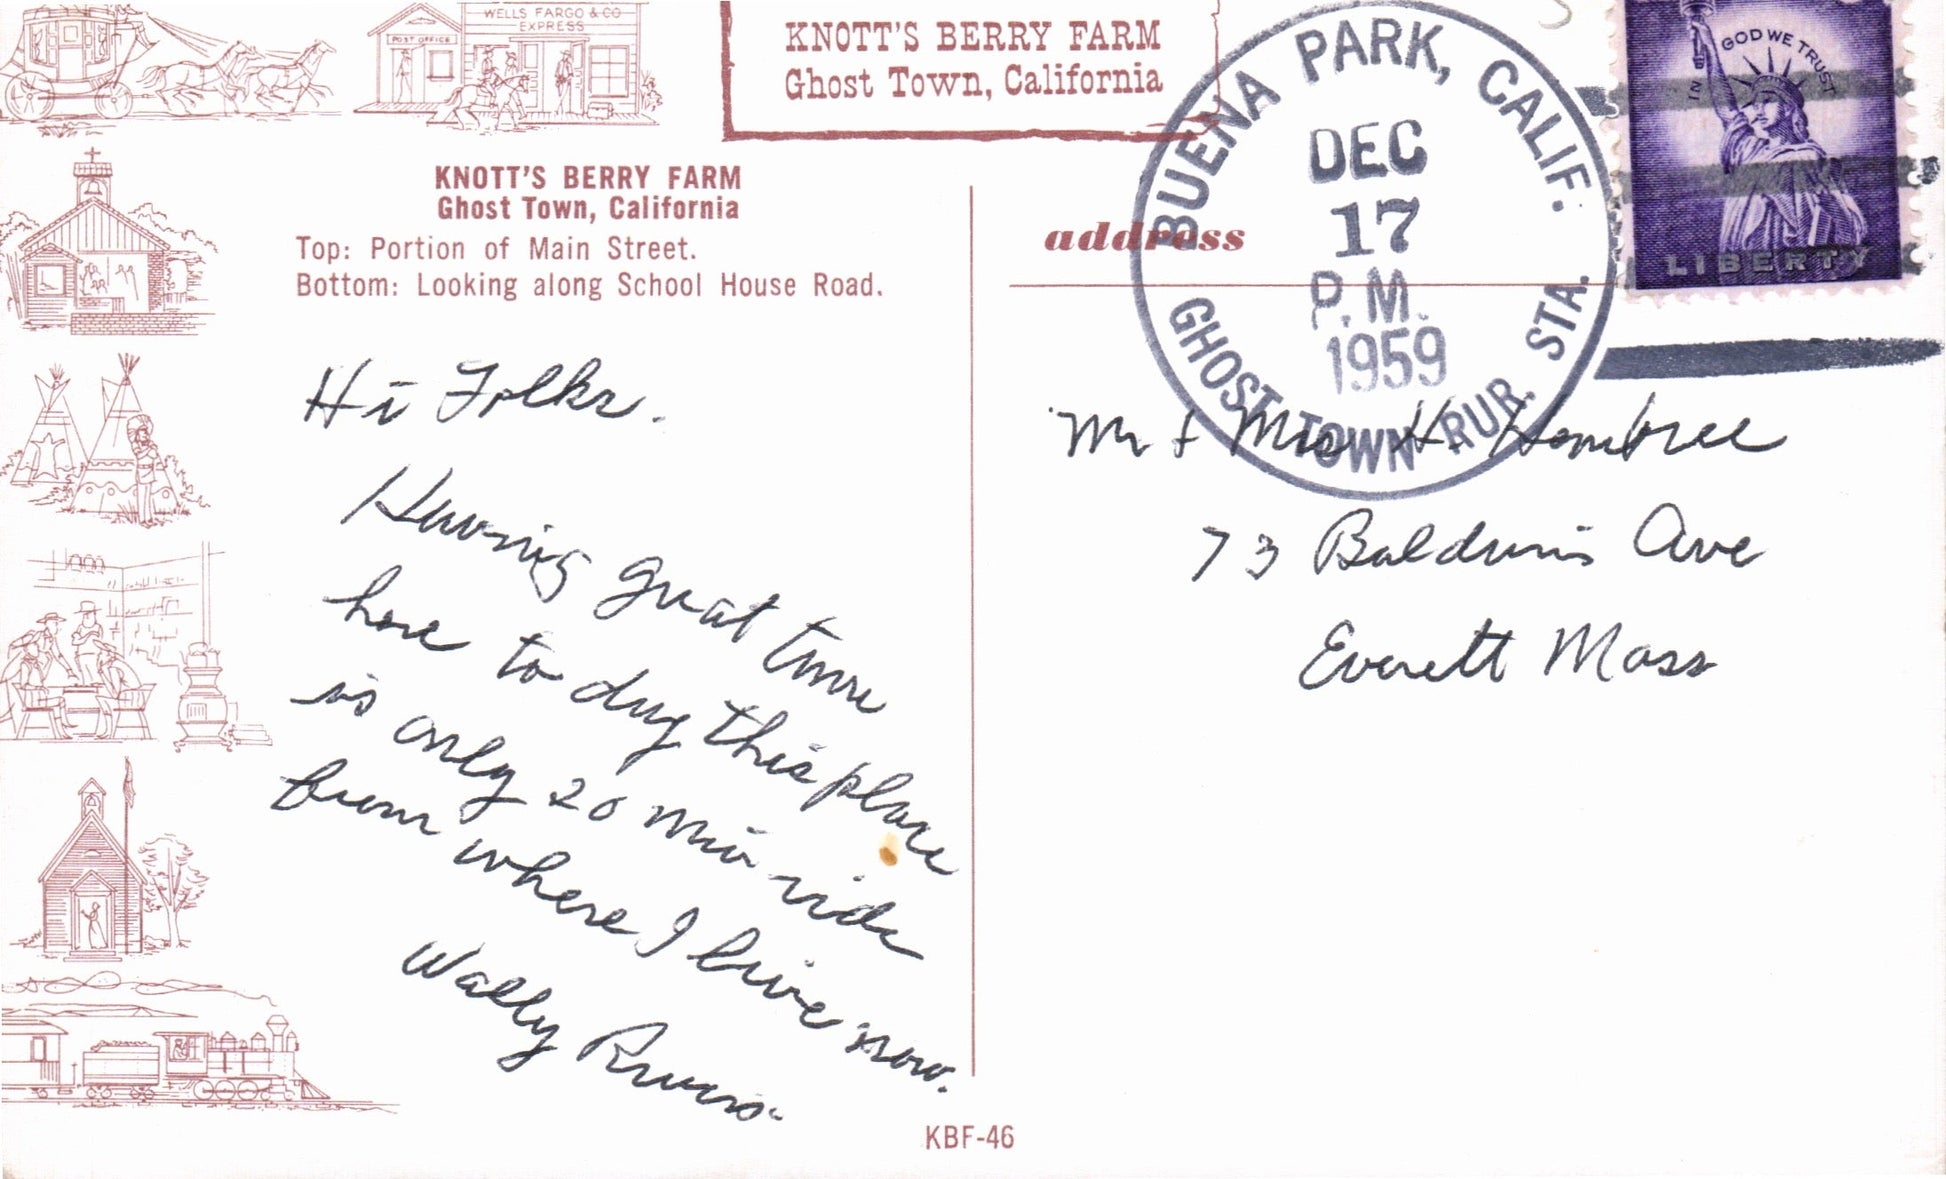 POST OFFICE
WELLS FARGO & CO
EXPRESS
KNOTT'S BERRY FARM
Ghost Town, California
KNOTT'S BERRY FARM
Ghost Town, California
Top: Portion of Main Street.
Bottom: Looking along School House Road.
Hi Folks.
Having great time
here to day this place
is only 20 min ride
from where I live now.
Wally
KBF-46
BUENA PARK, CALIF.
DEC
17
P.M.
1959
GHOST TOWN RUR. STA.
IN GOD WE TRUST
LIBERTY
address
Mr & Mrs H. Hembree
73 Baldwin Ave
Everett Mass